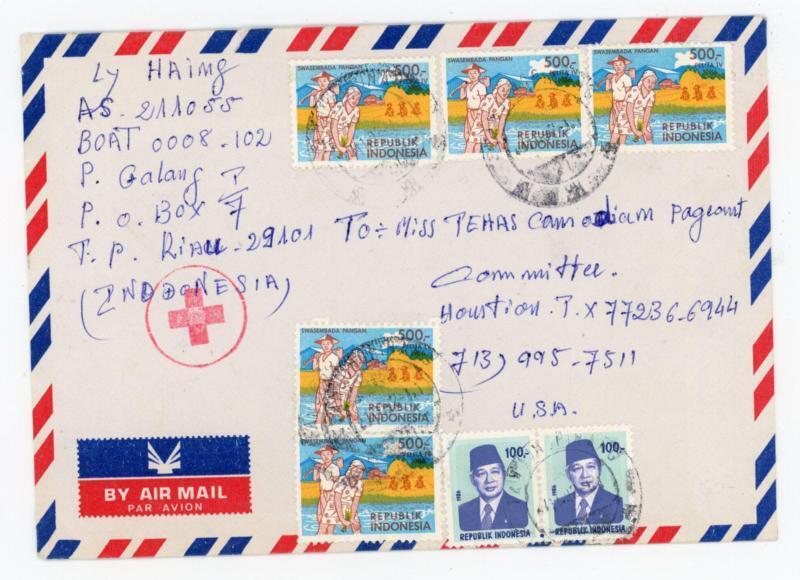 Ly HAimg
AS-211055
BOAT 0008-102
P. Galang I
P. o. Box 7
T. p. RiAu-29101
(INDONESIA)
SWASEMBADA PANGAN
500,-
PELITA IV
REPUBLIK
INDONESIA
SWASEMBADA PANGAN
500,-
PELITA IV
REPUBLIK
INDONESIA
SWASEMBADA PANGAN
500,-
PELITA IV
REPUBLIK
INDONESIA
To÷ Miss TEHAS Camodiam pageant
Committee.
Houstion. T.X 77236-6944
713) 995-7511
U.S.A.
SWASEMBADA PANGAN
500,-
REPUBLIK
INDONESIA
SWASEMBADA PANGAN
500,-
PELITA IV
REPUBLIK
INDONESIA
100,-
1986
REPUBLIK INDONESIA
100,-
1986
REPUBLIK INDONESIA
BY AIR MAIL
PAR AVION